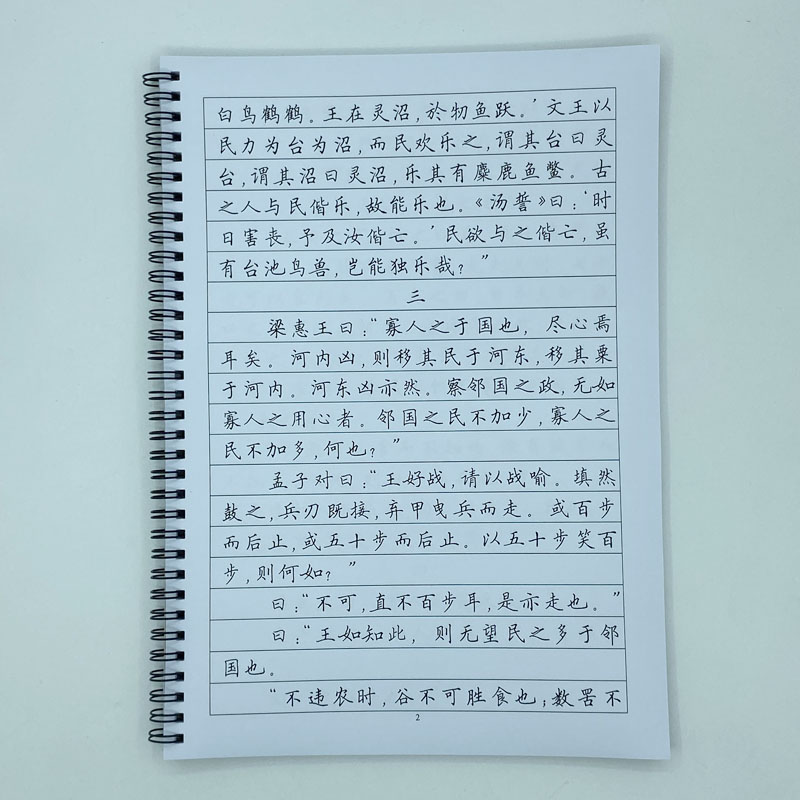 白鸟鹤鹤。王在灵沼，於牣鱼跃。’文王以
民力为台为沼，而民欢乐之，谓其台曰灵
台，谓其沼曰灵沼，乐其有麋鹿鱼鳖。古
之人与民偕乐，故能乐也。《汤誓》曰：‘时
日害丧，予及汝偕亡。’民欲与之偕亡，虽
有台池鸟兽，岂能独乐哉？”
三
梁惠王曰：“寡人之于国也，尽心焉
耳矣。河内凶，则移其民于河东，移其粟
于河内。河东凶亦然。察邻国之政，无如
寡人之用心者。邻国之民不加少，寡人之
民不加多，何也？”
孟子对曰：“王好战，请以战喻。填然
鼓之，兵刃既接，弃甲曳兵而走。或百步
而后止，或五十步而后止。以五十步笑百
步，则何如？”
曰：“不可，直不百步耳，是亦走也。”
曰：“王如知此，则无望民之多于邻
国也。
“不违农时，谷不可胜食也；数罟不
2